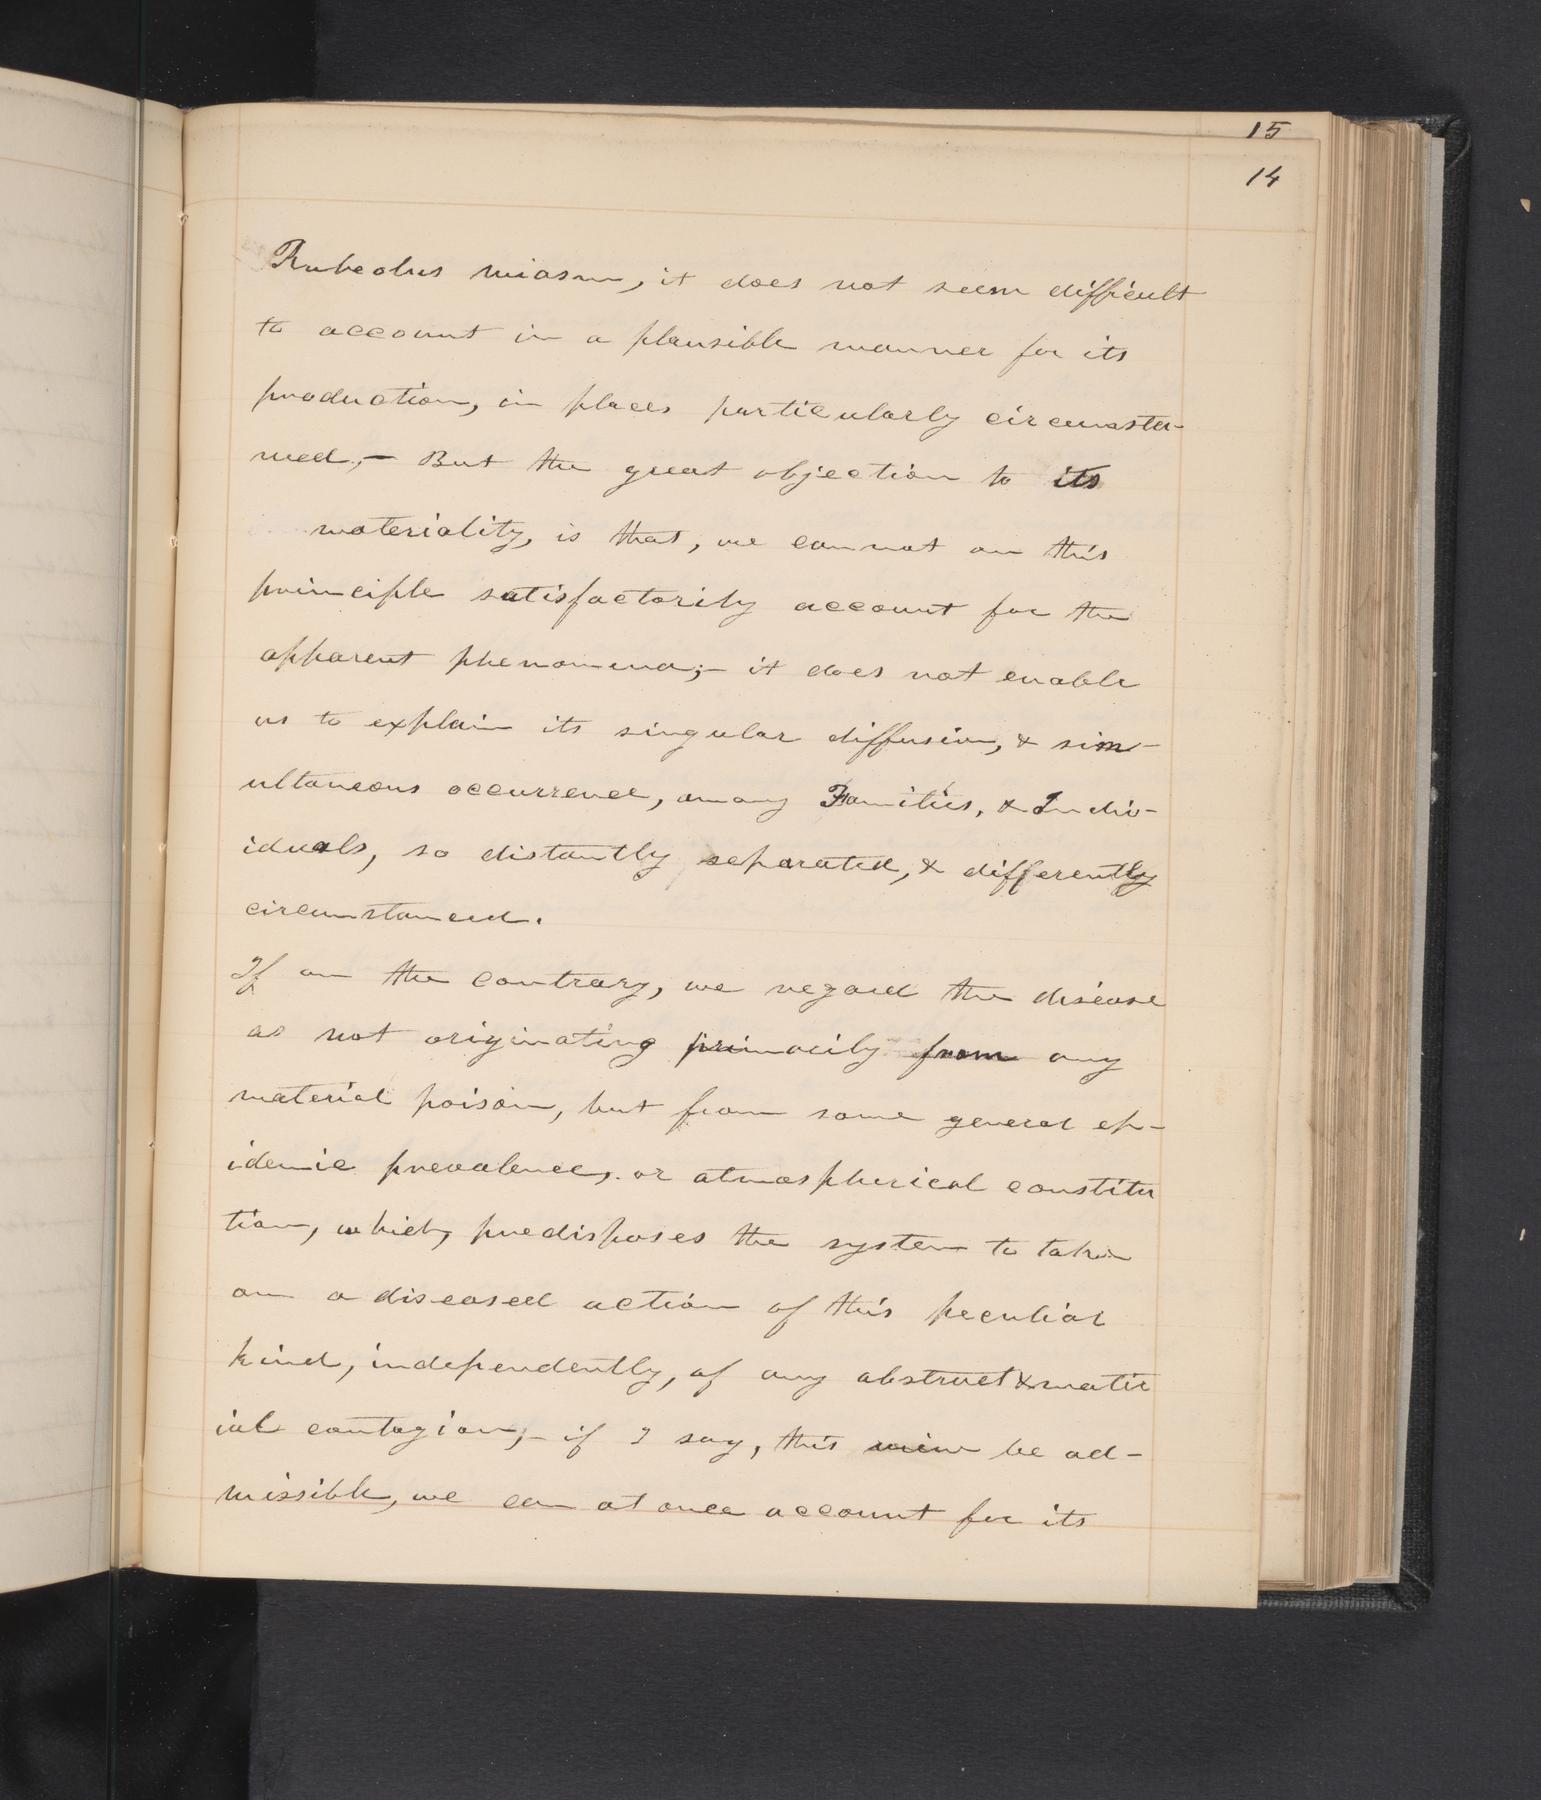 15
14
Rubeolus miasm, it does not seem difficult
to account in a plausible manner for its
production, in places particularly circumsta-
nced,- But the great objection to its
materiality, is that, we cannot on this
principle satisfactorily account for the
apparent phenomena;- it does not enable
us to explain its singular diffusion, & sim-
ultaneous occurrence, among Families, & Indiv-
iduals, so distantly separated, & differently
circumstanced.
If on the contrary, we regard the disease
as not originating primarily from any
material poison, but from some general ep-
idemic prevalence, or atmospherical constitu
tion, which, predisposes the system to take
on a diseased action of this peculiar
kind, independently, of any abstract & mater
ial contagion;- if I say, this view be ad-
missible, we can at once account for its